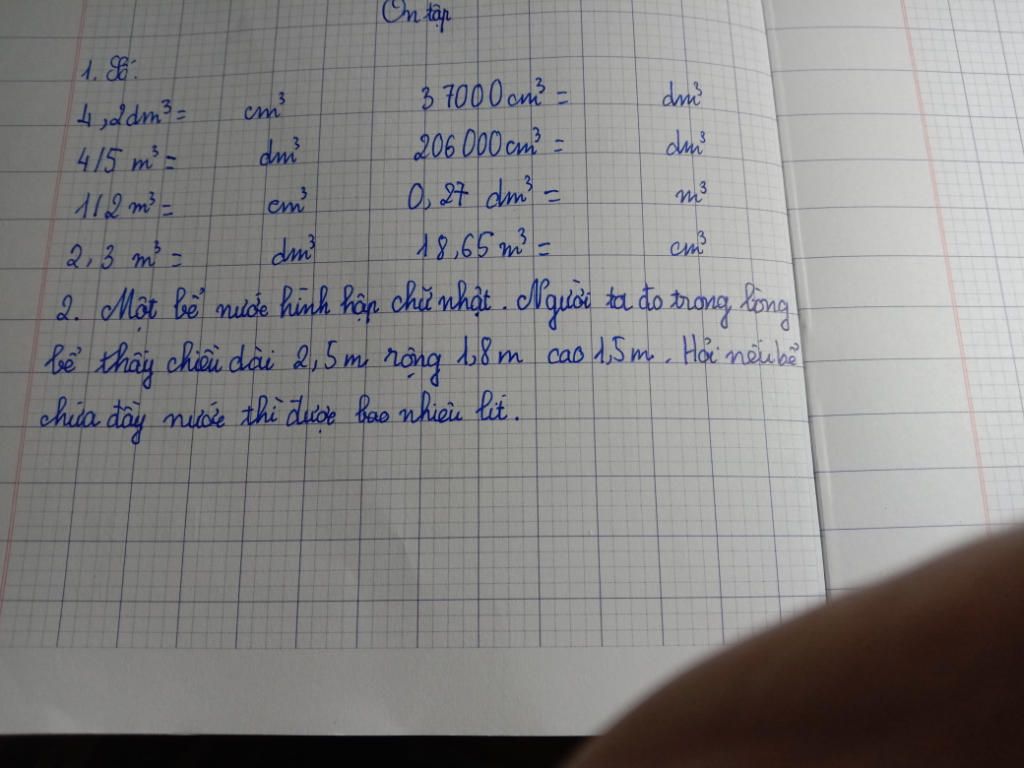 Ôn tập
1. Số:
4,2dm³ = cm³ 37000cm³ = dm³
4/5 m³ = dm³ 206000cm³ = dm³
1/2 m³ = cm³ 0,27 dm³ = m³
2,3 m³ = dm³ 18,65 m³ = cm³
2. Một bể nước hình hộp chữ nhật. Người ta đo trong lòng
bể thấy chiều dài 2,5m rộng 1,8m cao 1,5m. Hỏi nếu bể
chứa đầy nước thì được bao nhiêu lít.